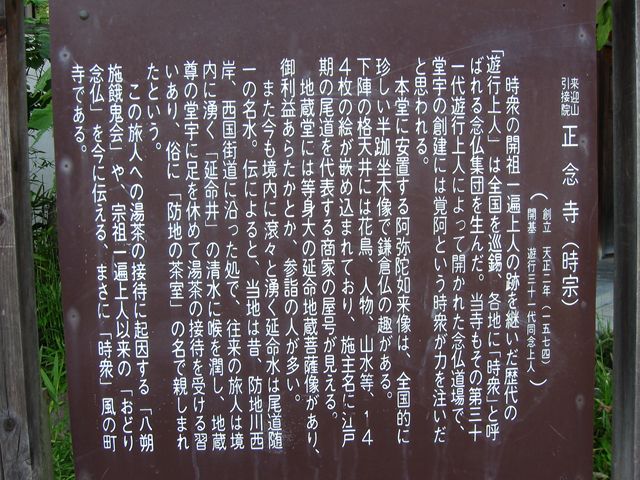 来迎山
引接院
正念寺（時宗）
（創立　天正二年（一五七四）
開基　遊行三十一代同念上人）
時衆の開祖一遍上人の跡を継いだ歴代の
「遊行上人」は全国を巡錫、各地に「時衆」と呼
ばれる念仏集団を生んだ。当寺もその第三十
一代遊行上人によって開かれた念仏道場で、
堂宇の創建には覚阿という時衆が力を注いだ
と思われる。
本堂に安置する阿弥陀如来像は、全国的に
珍しい半跏坐木像で鎌倉仏の趣がある。
下陣の格天井には花鳥、人物、山水等、１４
４枚の絵が嵌め込まれており、施主名に江戸
期の尾道を代表する商家の屋号が見える。
地蔵堂には等身大の延命地蔵菩薩像があり、
御利益あらたかとか、参詣の人が多い。
また今も境内に滾々と湧く延命水は尾道随
一の名水。伝によると、当地は昔、防地川西
岸、西国街道に沿った処で、往来の旅人は境
内に湧く「延命井」の清水に喉を潤し、地蔵
尊の堂宇に足を休めて湯茶の接待を受ける習
いあり、俗に「防地の茶室」の名で親しまれ
たという。
この旅人への湯茶の接待に起因する「八朔
施餓鬼会」や、宗祖一遍上人以来の「おどり
念仏」を今に伝える、まさに「時衆」風の町
寺である。